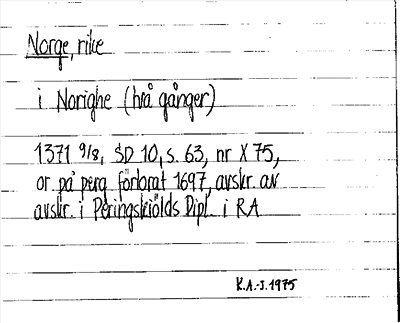 Norge, rike
i Norighe (två gånger)
1371 9/8, SD 10, s. 63, nr X 75,
or. på perg. förlorat 1697, avskr. av
avskr. i Peringskiölds Dipl. i RA
K.A.-J. 1975